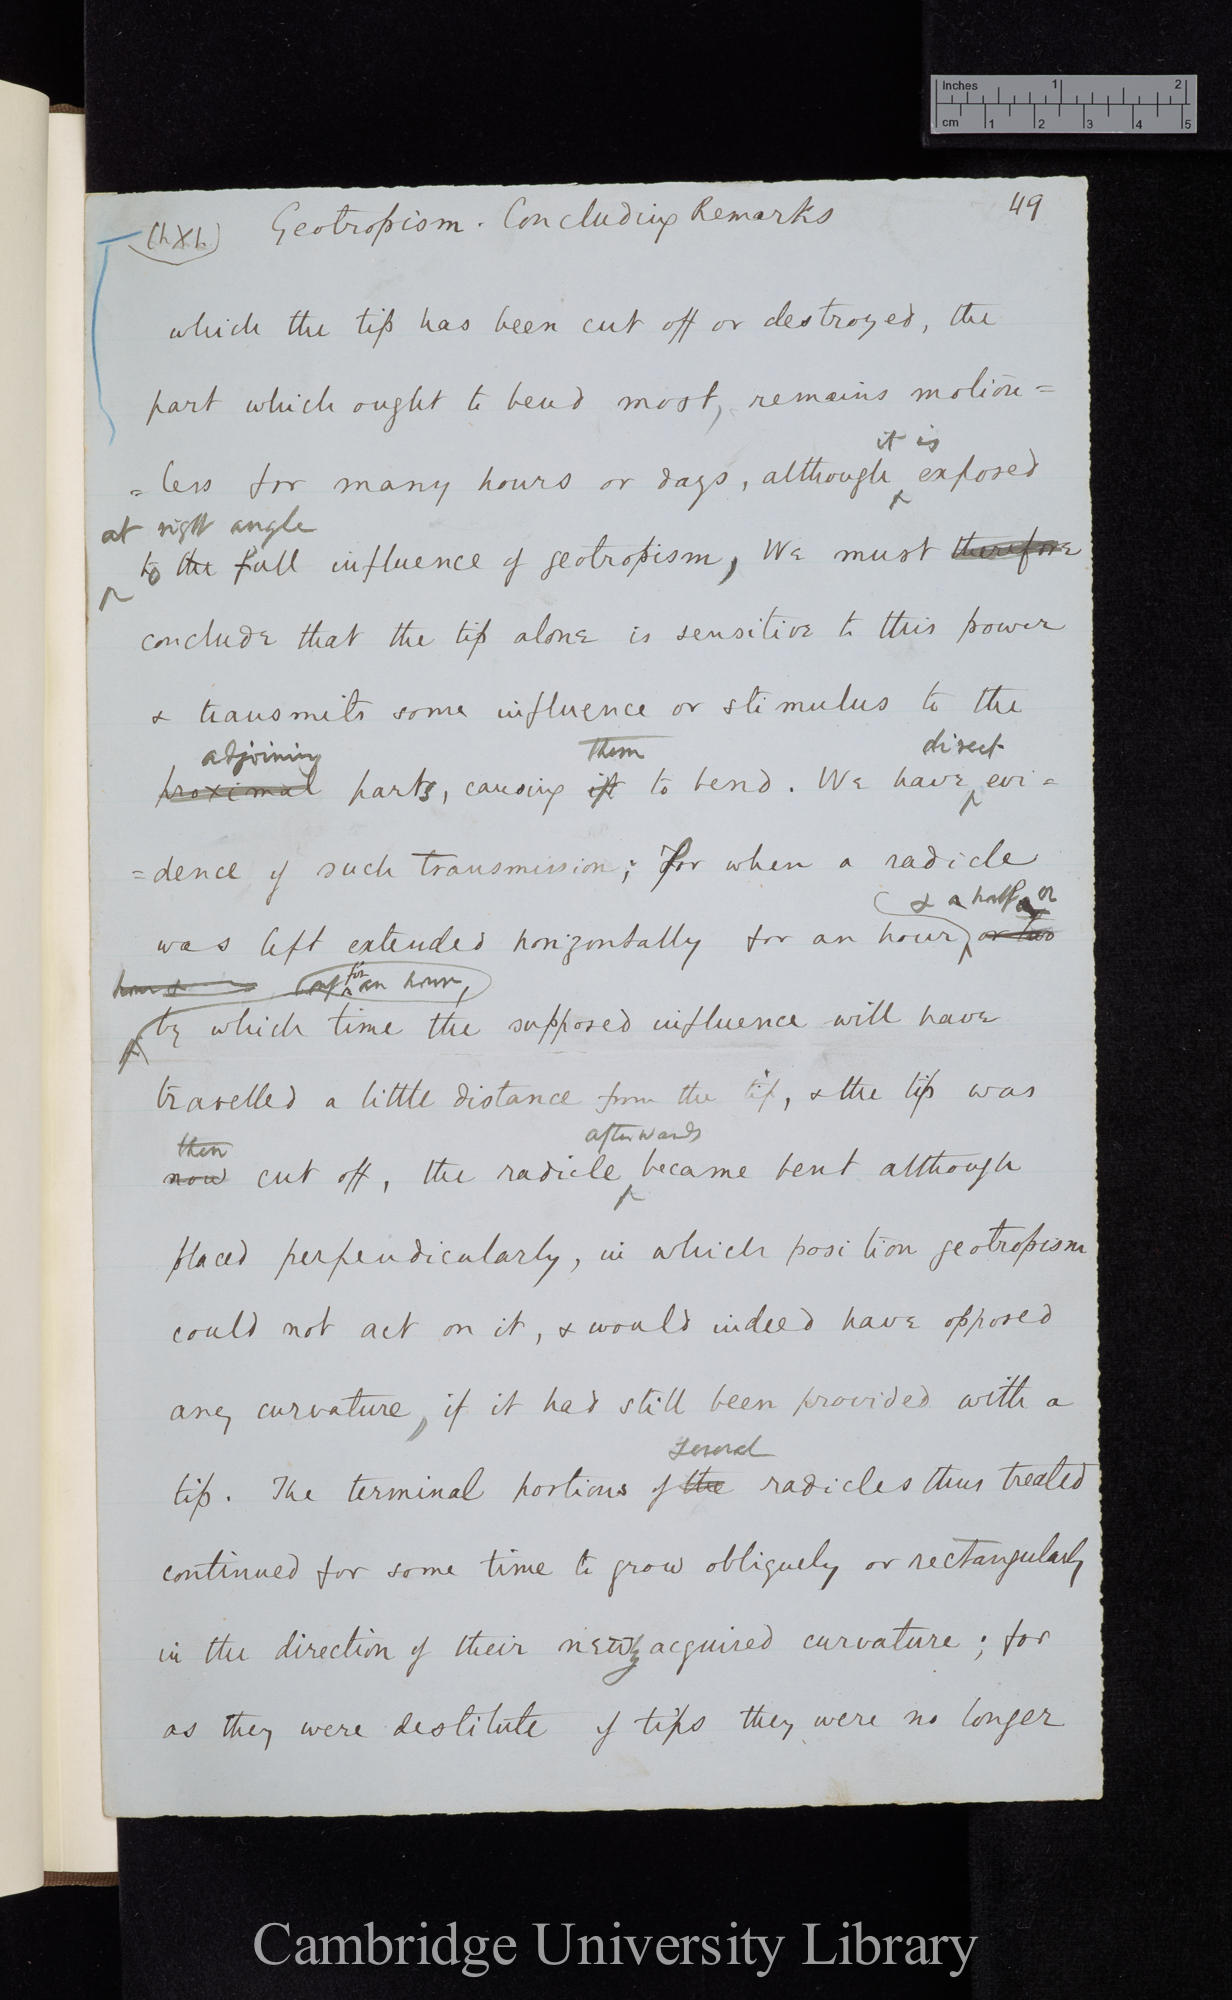 Inches 1 2
cm 1 2 3 4 5
Geotropism. Concluding Remarks 49
which the tip has been cut off or destroyed, the
part which ought to bend most, remains motion=
it is
=less for many hours or days, although exposed
at right angle
to the full influence of geotropism, We must therefore
conclude that the tip alone is sensitive to this power
& transmits some influence or stimulus to the
adjoining them direct
proximal parts, causing it to bend. We have evi=
=dence of such transmission; for when a radicle
& a half or
was left extended horizontally for an hour, or two
hours for an hour,
by which time the supposed influence will have
travelled a little distance from the tip, & the tip was
then afterwards
now cut off, the radicle became bent although
placed perpendicularly, in which position geotropism
could not act on it, & would indeed have opposed
any curvature, if it had still been provided with a
several
tip. The terminal portions of the radicles thus treated
continued for some time to grow obliquely or rectangularly
in the direction of their newly acquired curvature; for
as they were destitute of tips they were no longer
Cambridge University Library